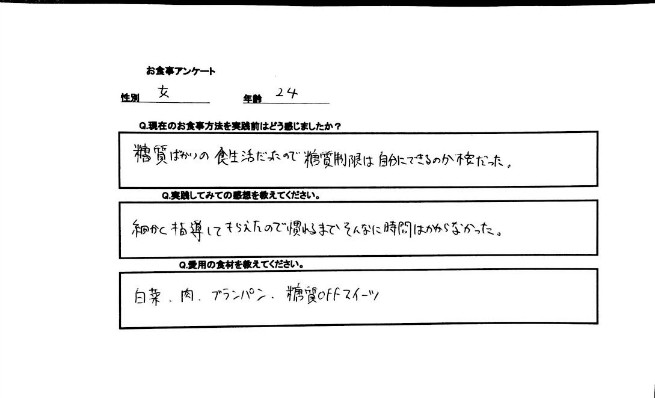 お食事アンケート
性別 女 年齢 24
Q.現在のお食事方法を実践前はどう感じましたか？
糖質ばかりの食生活だったので糖質制限は自分にできるのか不安だった。
Q.実践してみての感想を教えてください。
細かく指導してもらえたので慣れるまでそんなに時間はかからなかった。
Q.愛用の食材を教えてください。
白菜、肉、ブランパン、糖質OFFスイーツ